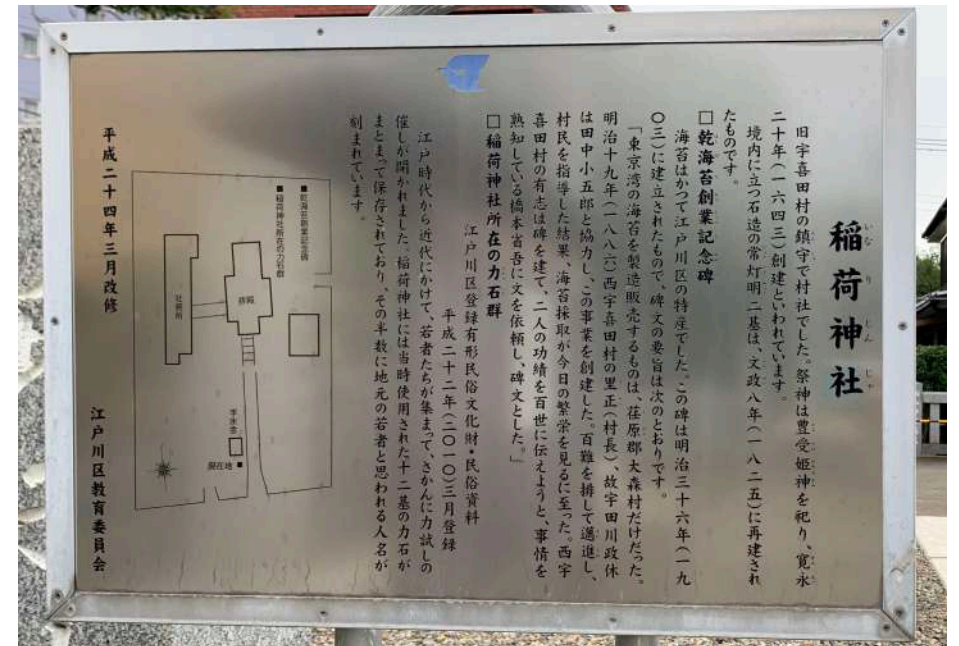 稲荷神社
いなりじんじゃ
旧宇喜田村の鎮守で村社でした。祭神は豊受姫神を祀り、寛永
二十年(一六四三)創建といわれています。
境内に立つ石造の常灯明二基は、文政八年(一八二五)に再建され
たものです。
□乾海苔創業記念碑
海苔はかつて江戸川区の特産でした。この碑は明治三十六年(一九
〇三)に建立されたもので、碑文の要旨は次のとおりです。
「東京湾の海苔を製造販売するものは、荏原郡大森村だけだった。
明治十九年(一八八六)西宇喜田村の里正(村長)、故宇田川政休
は田中小五郎と協力し、この事業を創建した。百難を排して邁進し、
村民を指導した結果、海苔採取が今日の繁栄を見るに至った。西宇
喜田村の有志は碑を建て、二人の功績を百世に伝えようと、事情を
熟知している橋本省吾に文を依頼し、碑文とした。」
□稲荷神社所在の力石群
江戸川区登録有形民俗文化財・民俗資料
平成二十二年(二〇一〇)三月登録
江戸時代から近代にかけて、若者たちが集まって、さかんに力試しの
催しが開かれました。稲荷神社には当時使用された十二基の力石が
まとまって保存されており、その半数に地元の若者と思われる人名が
刻まれています。
■乾海苔創業記念碑
■稲荷神社所在の力石群
拝殿
社務所
手水舎
現在地■
平成二十四年三月改修
江戸川区教育委員会